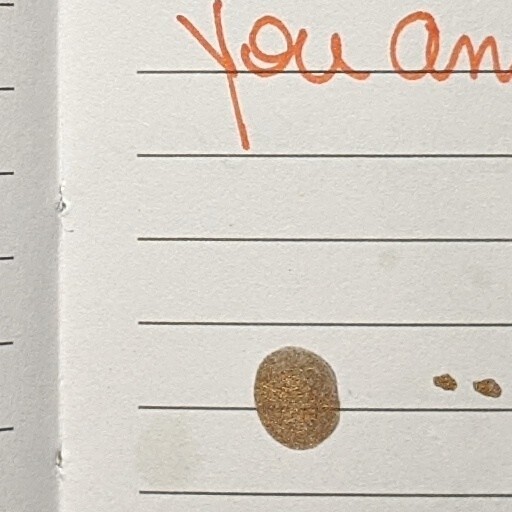 You an